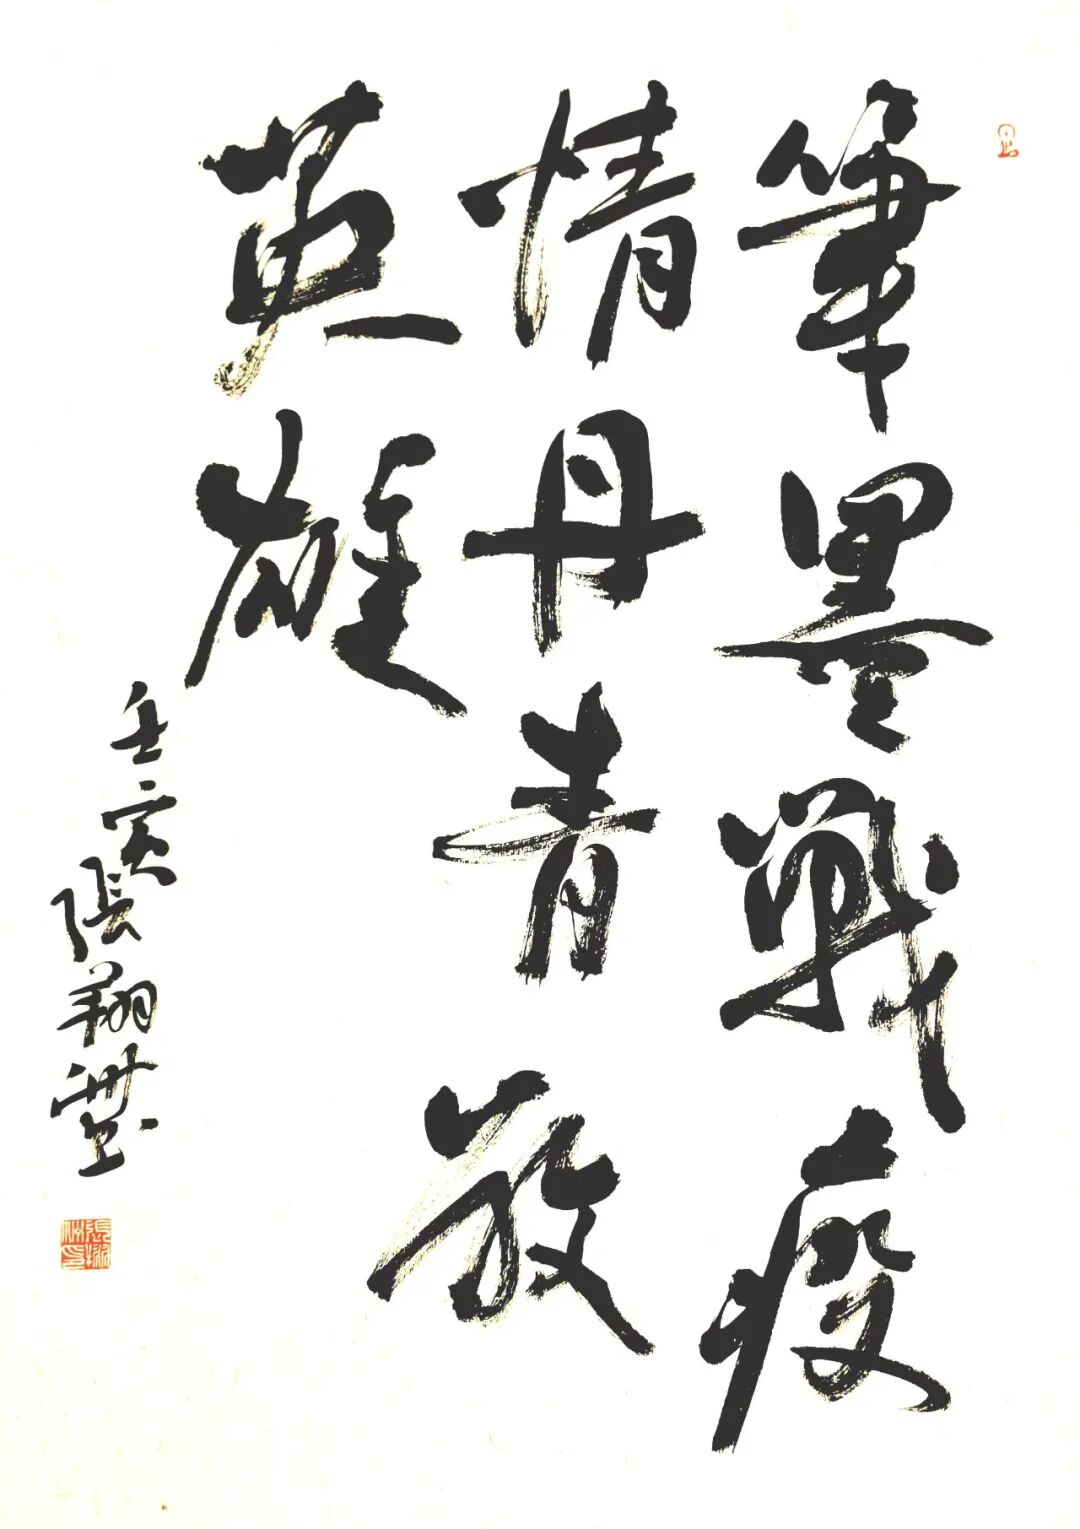 筆墨戰疫
情丹青敬
英雄
壬寅張翔洲书